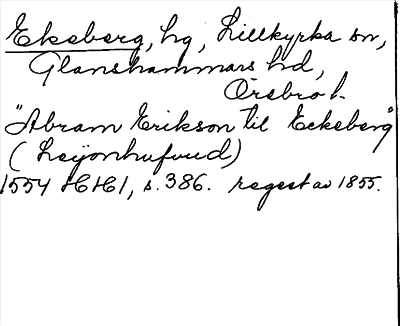 Ekeberg, hg, Lillkyrka sn,
Glanshammars hd,
Örebro l.
"Abram Erikson til Eckeberg"
(Leijonhufvud)
1554 HH1, s. 386. regest av 1855.